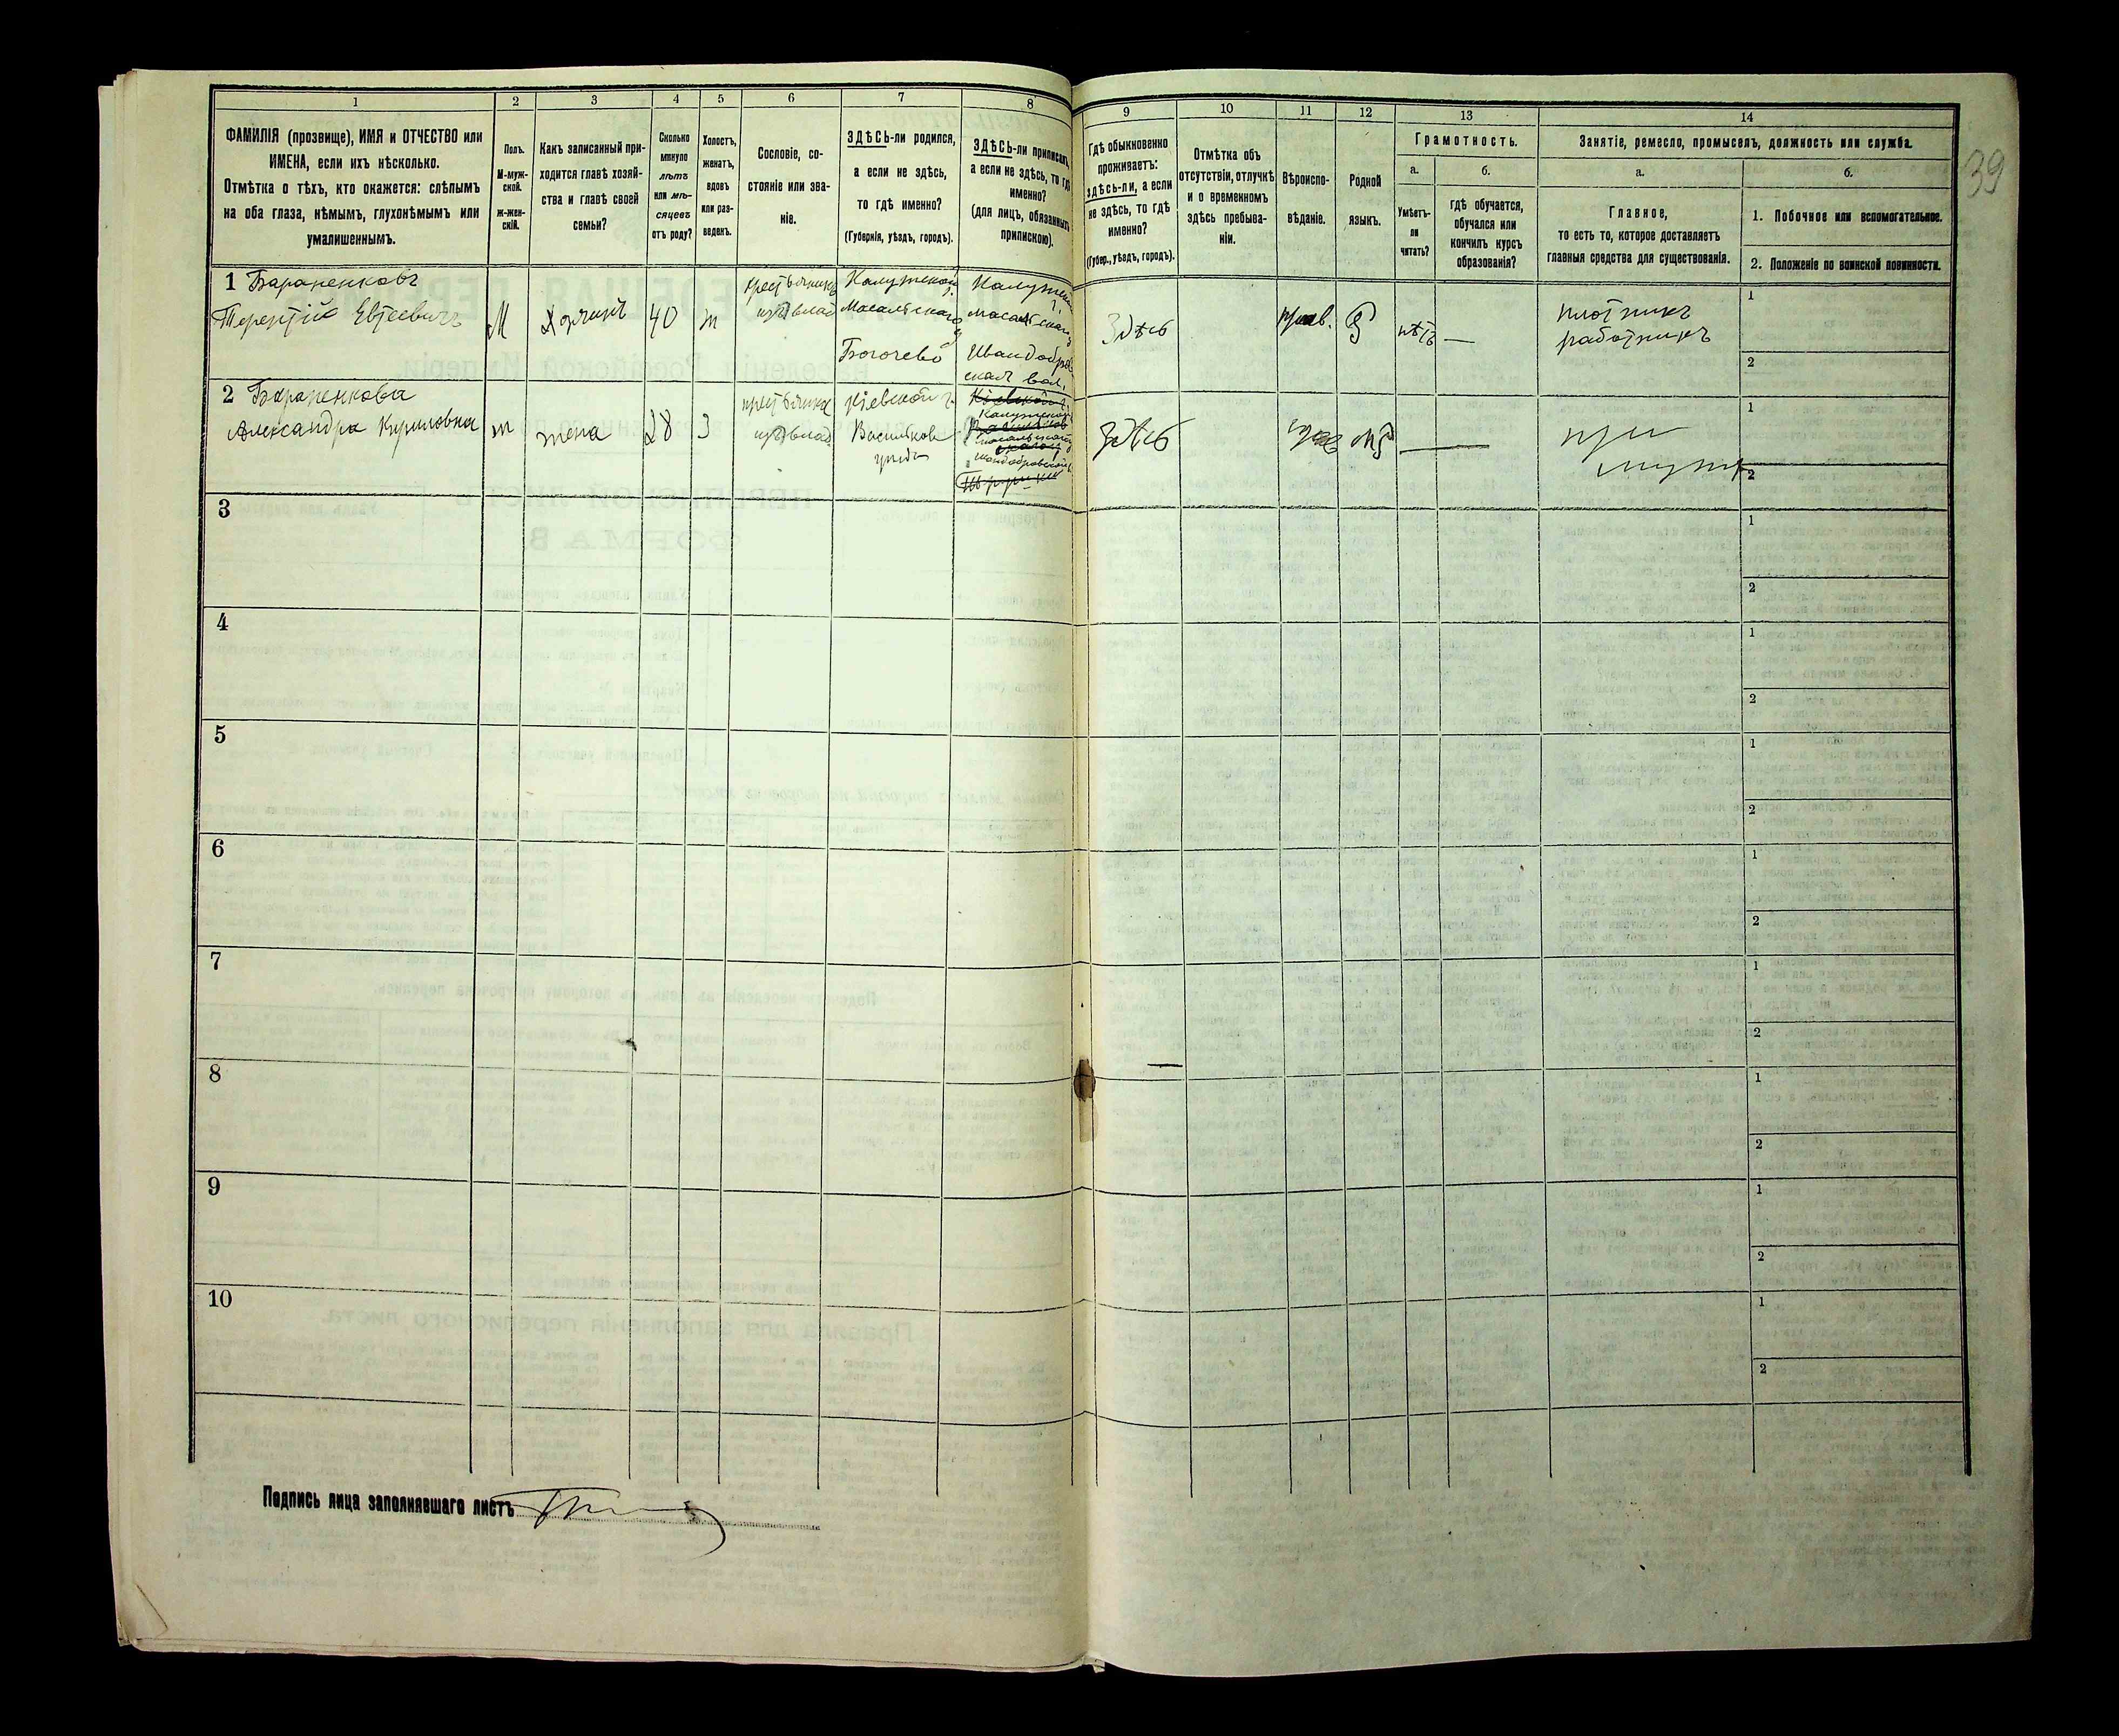 39
1 2 3 4 5 6 7 8 9 10 11 12 13 14
ФАМИЛІЯ (прозвище), ИМЯ и ОТЧЕСТВО или
ИМЕНА, если ихъ нѣсколько.
Отмѣтка о тѣхъ, кто окажется: слѣпымъ
на оба глаза, нѣмымъ, глухонѣмымъ или
умалишеннымъ.
Полъ.
М-муж-
ской.
ж-жен-
скій.
Какъ записанный при-
ходится главѣ хозяй-
ства и главѣ своей
семьи?
Сколько
минуло
лѣтъ
или мѣ-
сяцевъ
отъ роду?
Холостъ,
женатъ,
вдовъ
или раз-
веденъ.
Сословіе, со-
стояніе или зва-
ніе.
ЗДѢСЬ-ли родился,
а если не здѣсь,
то гдѣ именно?
(Губернія, уѣздъ, городъ).
ЗДѢСЬ-ли приписанъ,
а если не здѣсь, то гдѣ
именно?
(для лицъ, обязанныхъ
припискою).
Гдѣ обыкновенно
проживаетъ:
здѣсь-ли, а если
не здѣсь, то гдѣ
именно?
(Губер., уѣздъ, городъ).
Отмѣтка объ
отсутствіи, отлучкѣ
и о временномъ
здѣсь пребыва-
ніи.
Вѣроиспо-
вѣданіе.
Родной
языкъ.
Грамотность.
а.
Умѣетъ-
ли
читать?
б.
гдѣ обучается,
обучался или
кончилъ курсъ
образованія?
Занятіе, ремесло, промыселъ, должность или служба.
а.
Главное,
то есть то, которое доставляетъ
главныя средства для существованія.
б.
1. Побочное или вспомогательное.
2. Положеніе по воинской повинности.
1 Бараненковъ
Терентій Евтеевичъ
М
Хозяинъ
40
ж
Калужской г.
Масальскаго у
Богочево
Калужской
г.
Масальскаго
скал вол.
Здѣсь
прав.
Р
нѣтъ —
плотникъ
работникъ
1
2
2 Бараненкова
Александра Кириловна
ж
жена
28
З
Кіевской г.
Васильков
уѣзда
Кіевской г.
Калужской
Здѣсь
—
при
мужѣ
1
2
3
1
2
4
1
2
5
1
2
6
1
2
7
1
2
8
1
2
9
1
2
10
1
2
Подпись лица заполнявшаго листъ